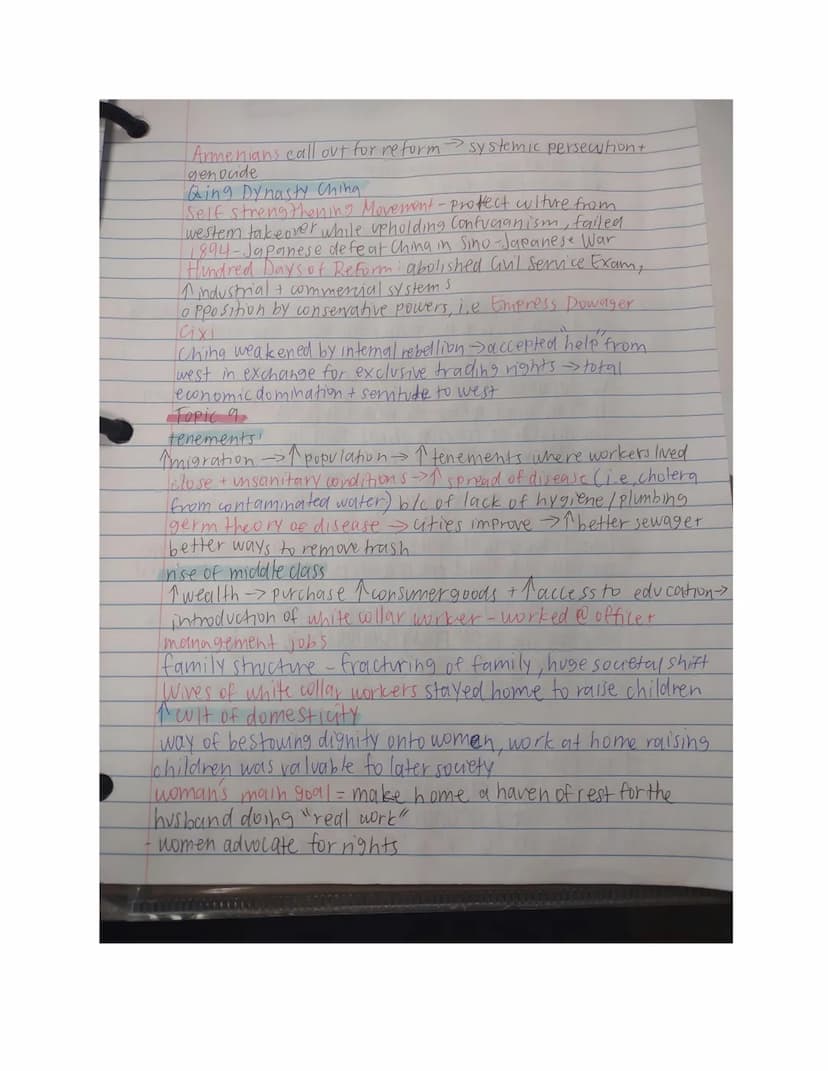 Armenians call out for reform → systemic persecution +
genocide
Qing Dynasty China
Self strengthening Movement - protect culture from
western takeover while upholding Confucianism, failed
1894 - Japanese defeat China in Sino-Japanese War
Hundred Days of Reform: abolished Civil Service Exam,
↑ industrial + commercial systems
opposition by conservative powers, i.e Empress Dowager
Cixi
China weakened by internal rebellion → accepted "help" from
west in exchange for exclusive trading rights → total
economic domination + servitude to west
Topic 9
tenements
↑ migration → ↑ population → ↑ tenements where workers lived
close + unsanitary conditions → ↑ spread of disease (i.e, cholera
from contaminated water) b/c of lack of hygiene/plumbing
germ theory of disease → cities improve → ↑ better sewager
better ways to remove trash
rise of middle class
↑ wealth → purchase ↑ consumer goods + ↑ access to education →
introduction of white collar worker - worked @ office +
management jobs
family structure - fracturing of family, huge societal shift
Wives of white collar workers stayed home to raise children
↑ cult of domesticity
way of bestowing dignity onto women, work at home raising
children was valuable to later society
woman's main goal = make home a haven of rest for the
husband doing "real work"
- women advocate for rights